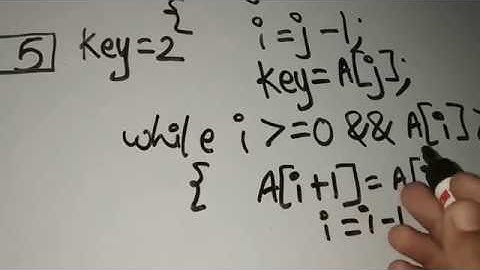 5 key=2 { i=j-1;
key=A[j];
while i>=0 && A[i]>
{ A[i+1]=A[
i=i-1